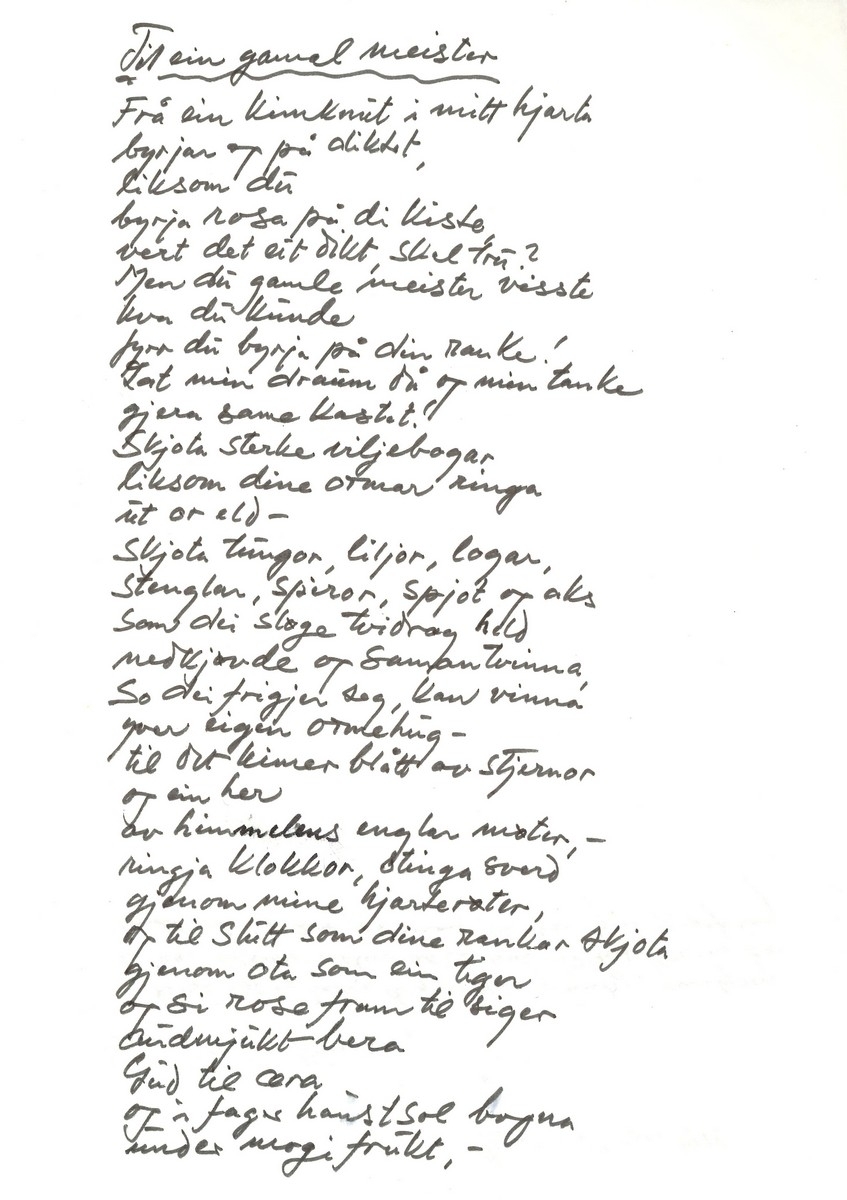 Til ein gamal meister
Frå ein kimknut i mitt hjarta
byrjar eg på diktet,
liksom du
byrja rosa på di kiste,
vert det eit dikt, skal tru?
Men du gamle meister visste
kva du kunde
fyrr du byrja på din ranke!
Lat min draum då og min tanke
gjera same kastet!
Skjota sterke viljebogar
liksom dine ormar ringa
ut or eld –
Skjota tungor, liljor, logar,
stenglar, spiror, spjot og aks
som dei sløge tvidrag held
nedkjøvde og samantvinna,
So dei frigjer seg, kan vinna
yver eigen ormehug –
til det kimer blått av stjernor
og ein her
av himmelens englar møter, –
ringja klokkor, stinga sverd
gjenom mine hjarterøter,
og til slutt som dine rankar skjota
gjenom ota som ein tiger
og si rose fram til siger
audmjukt bera
Gud til æra
og i fager haustsol bogna
under mogi frukt, –